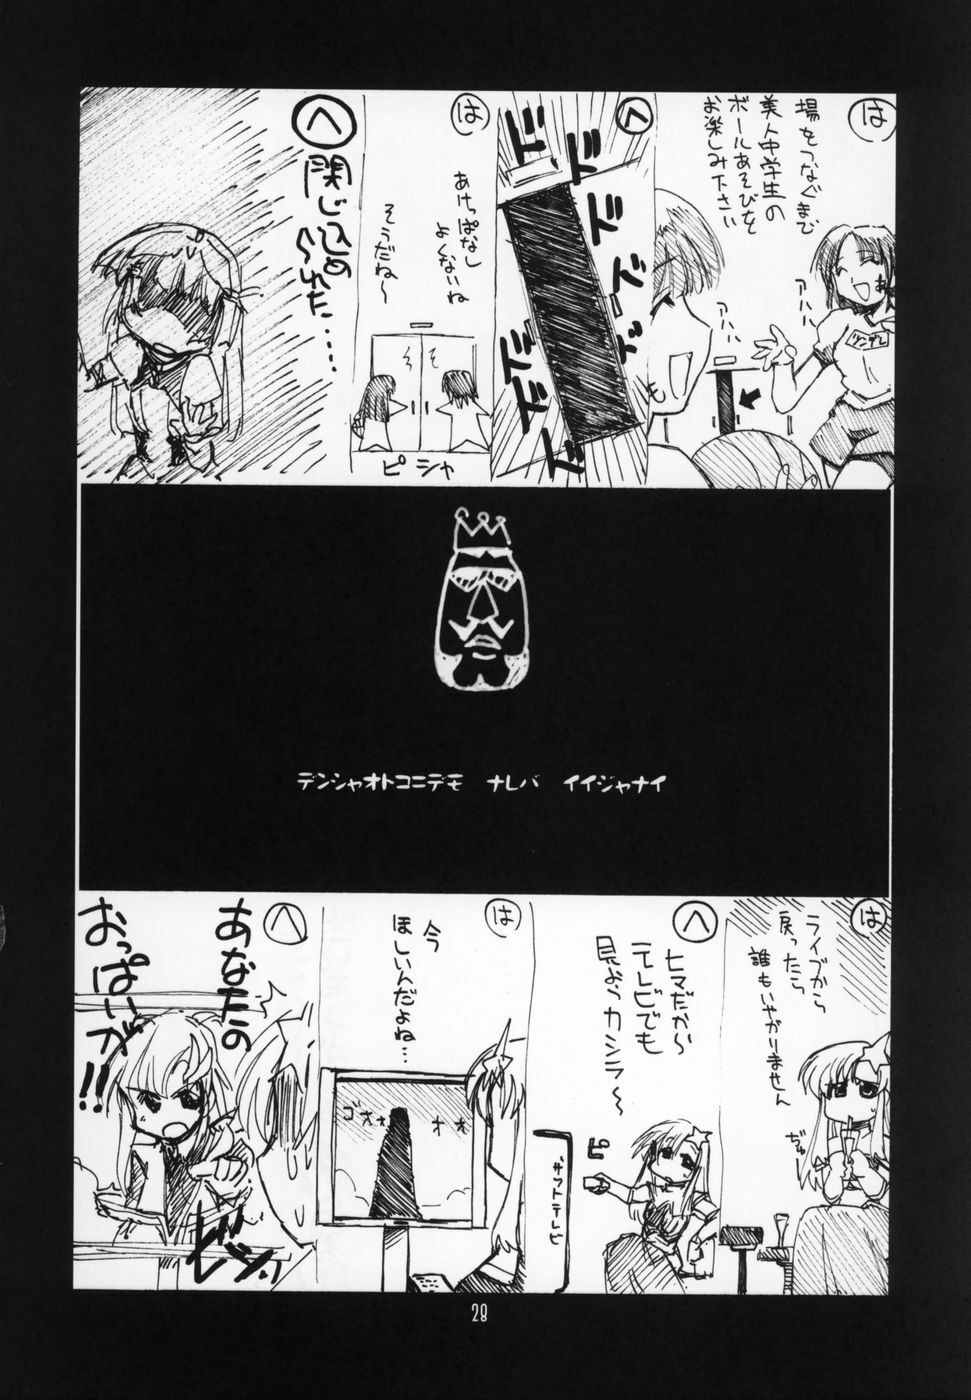 は
場をつなぐまで
美人中学生の
ボールあそびを
お楽しみ下さい
アハハ
アハハ
リンガル
へ
ドド
ド
ズズズ
ズズズ
は
あけっぱなし
よくないね
そうだね〜
そ
そ
ピシャ
へ
閉じ込め
られた……
デンシャオトコニデモ ナレバ イイジャナイ
は
ライブから
戻ったら
誰もいやがりません
ぢゅー
へ
ヒマだから
テレビでも
見ようカシラ〜
ピ
ザットテレビ
は
今
ほしいんだよね…
ゴオォ
オオ
へ
あなたの
おっぱいが!!
ビシッ
28